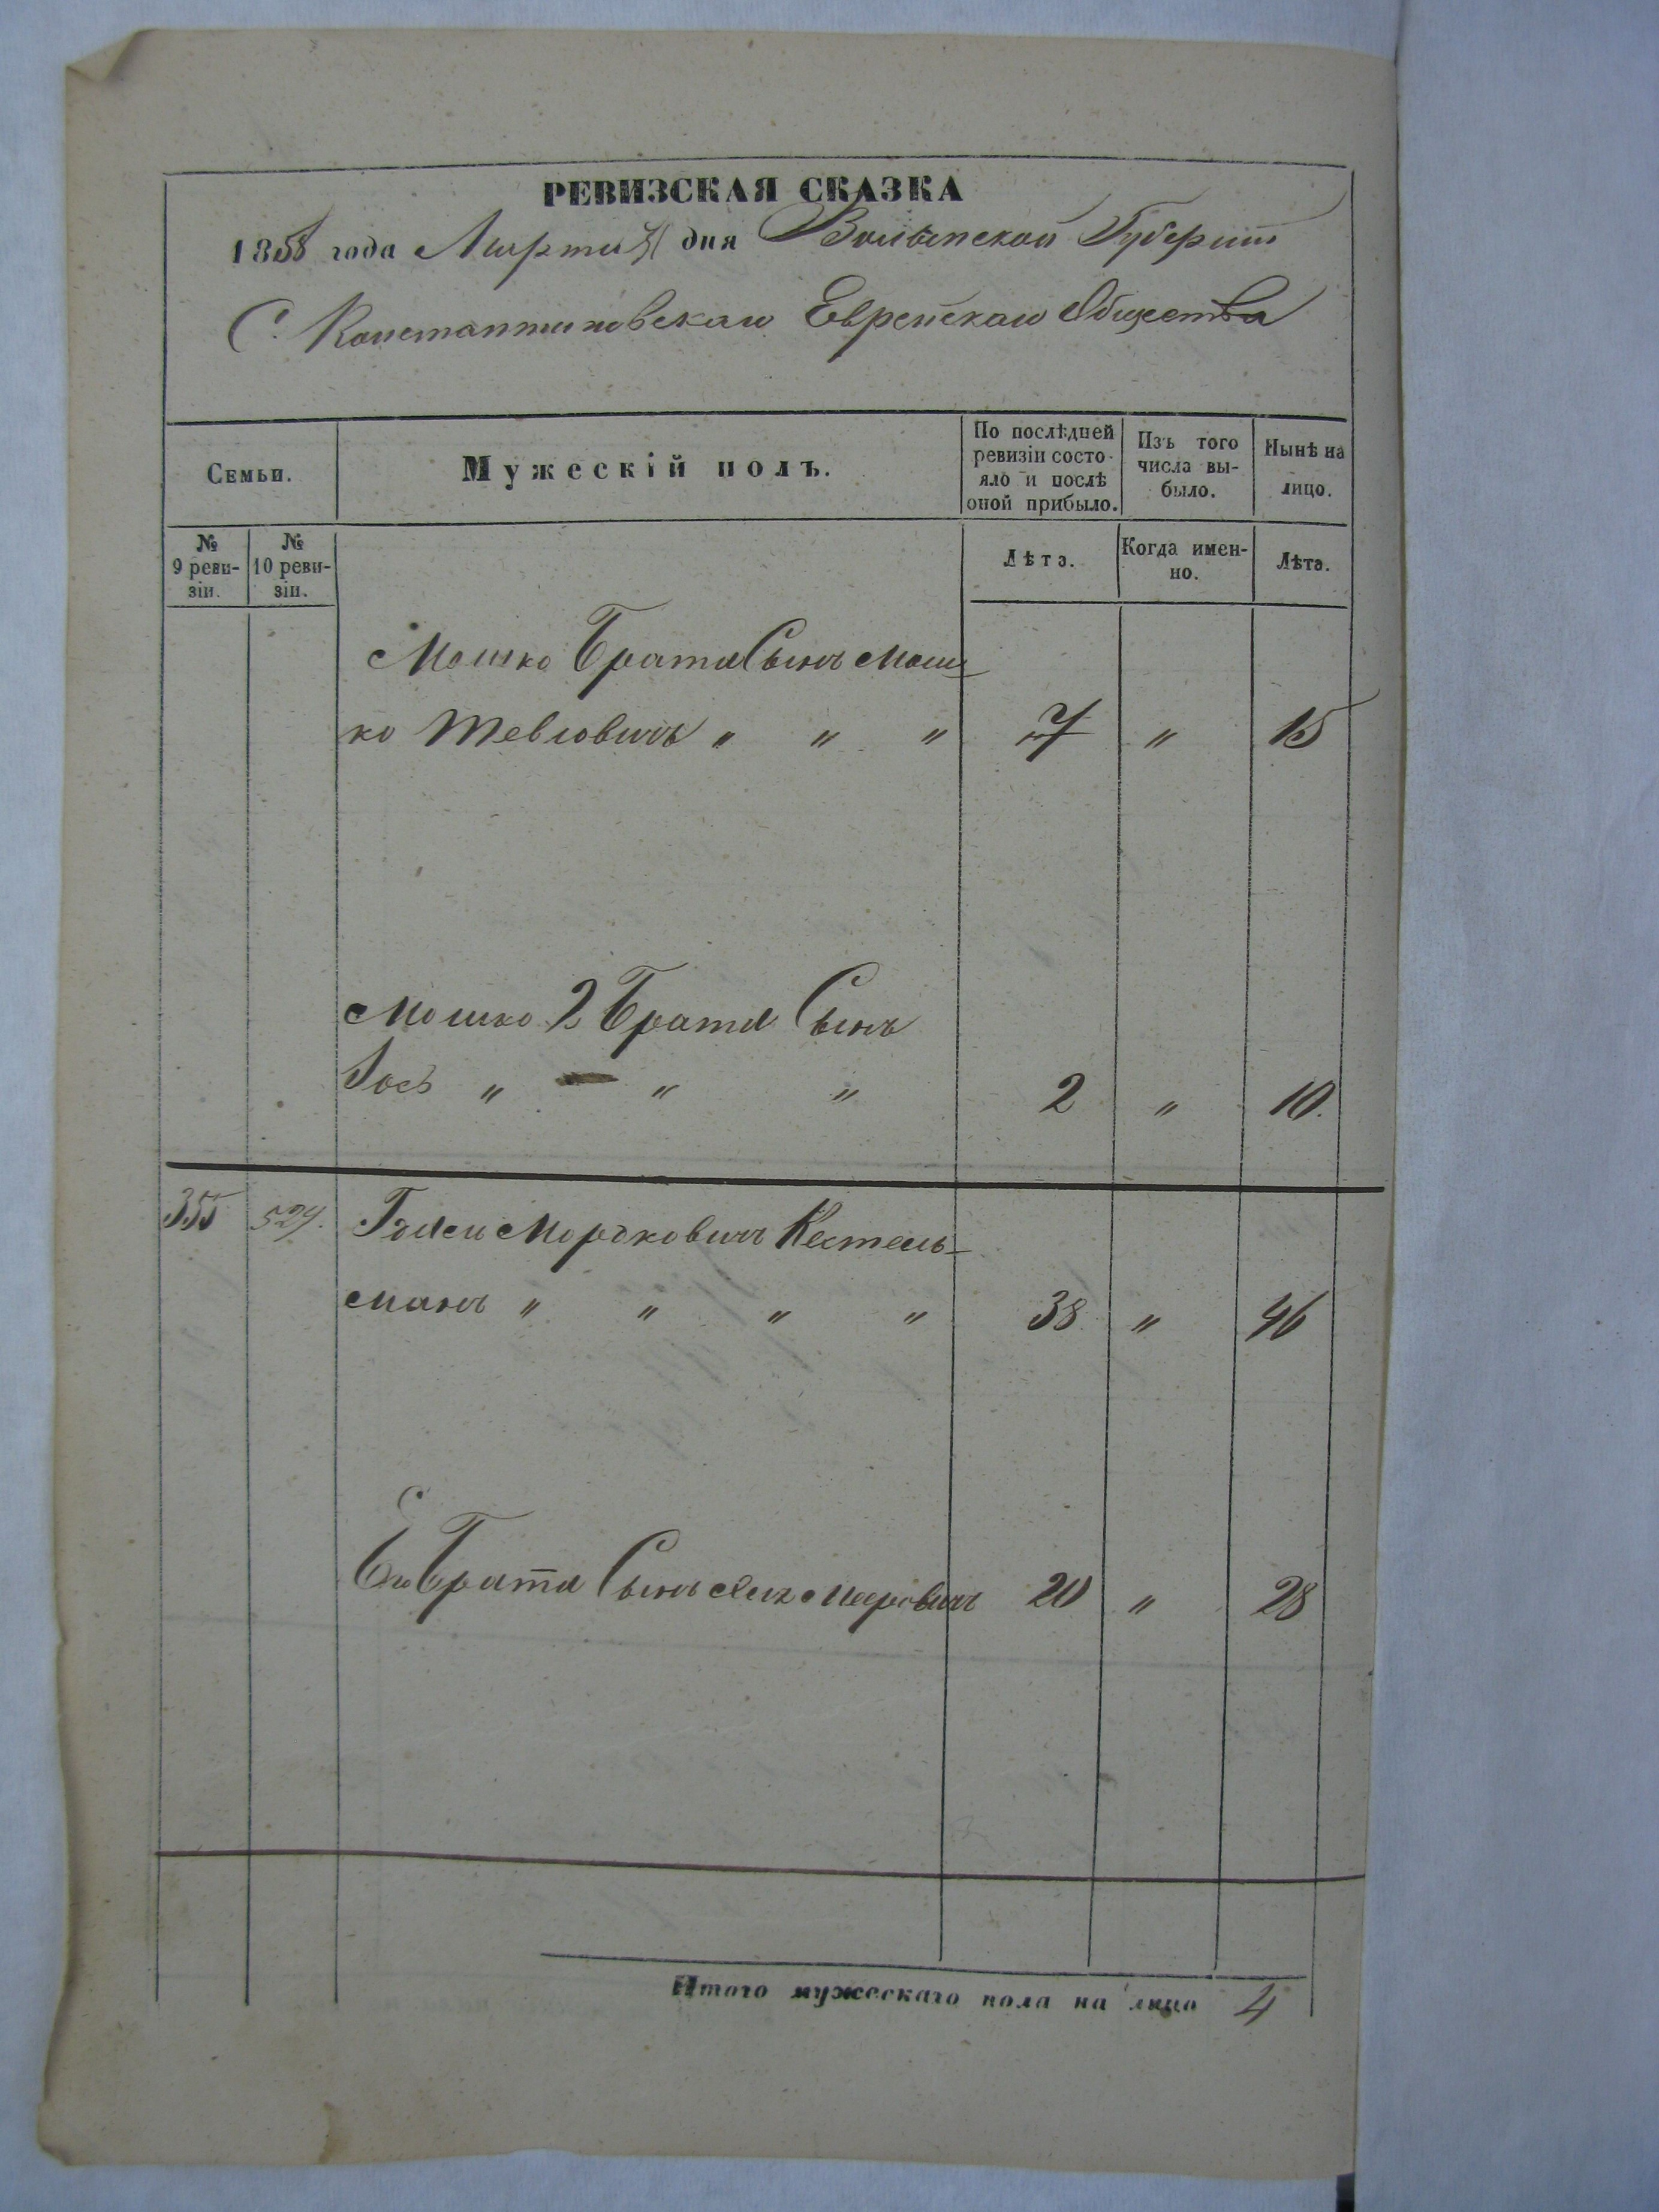 РЕВИЗСКАЯ СКАЗКА
1858 года Марта дня Волынской Губерніи
С. Константиновскаго Еврейскаго Общества
Семьи.
Мужескій полъ.
По послѣдней ревизіи состо-
яло и послѣ оной прибыло.
Изъ того числа вы-
было.
Нынѣ на лицо.
№ 9 реви-
зіи.
№ 10 реви-
зіи.
Лѣта.
Когда имен-
но.
Лѣта.
Мошко Брата Сынъ Мош-
ко Тевіовичъ " " " 7 " 15
Мошко 2 Брата Сынъ
Іось " " " 2 " 10.
355 Мордковичъ Кестель-
манъ " " " " 38 " 46
Его Брата Сынъ Мееровичъ 20 " 28
Итого мужескаго пола на лицо 4